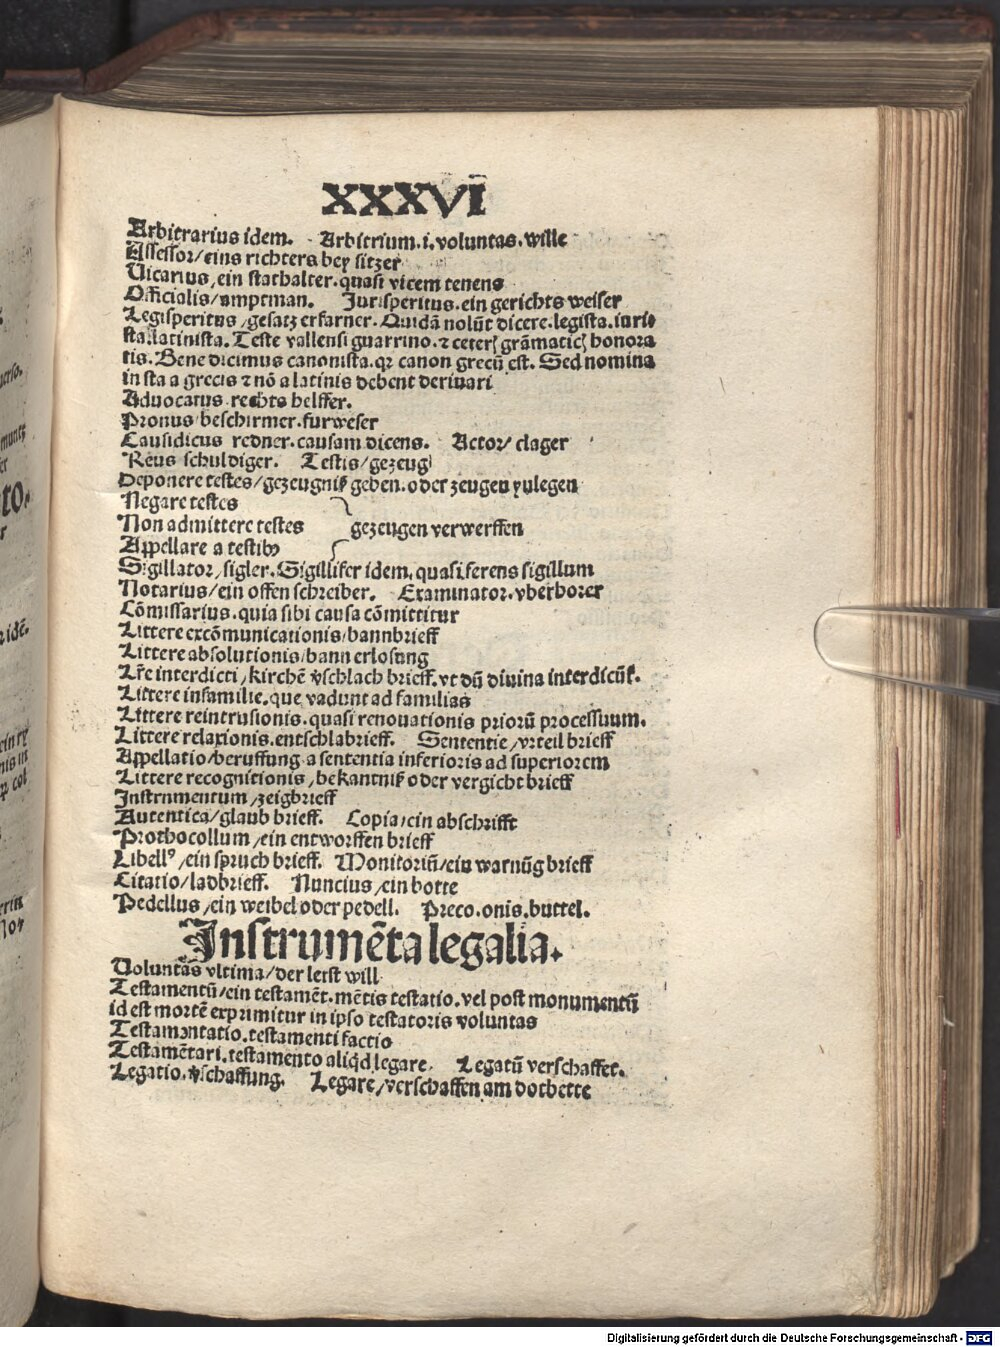 XXXVI
Arbitrarius idem. Arbitrium.i.voluntas.wille
Assessor/eins richters bey sitzer
Vicarius,ein stathalter.quasi vicem tenens
Officialis/amptman. Jurisperitus.ein gerichts weiser
Legisperitus,gesatz erfarner.Quidā nolūt dicere.legista.iuri-
sta.latinista.Teste vallensi guarrino.⁊ ceterꝭ grāmaticꝭ honora
tis.Bene dicimus canonista.qꝛ canon grecū est. Sed nomina
in sta a grecis ⁊ nō a latinis debent deriuari
Aduocatus.rechts helffer.
Pronus beschirmer.furweser
Causidicus redner.causam dicens. Actor/clager
Reus schuldiger. Testis/gezeug
Deponere testes/gezeugniß geben.oder zeugen yulegen
Negare testes
Non admittere testes gezeugen verwerffen
Appellare a testibꝰ
Sigillator,sigler.Sigillifer idem.quasi ferens sigillum
Notarius/ein offen schreiber. Examinator.vberhorer
Cōmissarius.quia sibi causa cōmittitur
Littere excōmunicationis/bannbrieff
Littere absolutionis/bann erlosung
Lr̄e interdicti,kirchē v̄schlach brieff.vt dū diuina interdicūt̉.
Littere infamilie.que vadunt ad familias
Littere reintrusionis.quasi renouationis priorū processuum.
Littere relaxionis.entschlabrieff. Sententie/vrteil brieff
Appellatio/beruffung a sententia inferioris ad superiorem
Littere recognitionis,bekantniß oder vergicht brieff
Instrumentum,zeigbrieff
Autentica/glaub brieff. Copia/ein abschrifft
Prothocollum,ein entworffen brieff
Libellꝰ,ein spruch brieff. Monitoriū/ein warnūg brieff
Citatio/ladbrieff. Nuncius,ein botte
Pedellus,ein weibel oder pedell. Preco.onis.buttel.
Instrumēta legalia.
Voluntas vltima/der letst will
Testamentū/ein testamēt.mētis testatio.vel post monumentū
id est mortē exprimitur in ipso testatoris voluntas
Testamentatio.testamenti factio
Testamētari.testamento aliqd̄ legare. Legatū verschaffet.
Legatio.v̄schaffung. Legare,verschaffen am dotbette
Digitalisierung gefördert durch die Deutsche Forschungsgemeinschaft - DFG